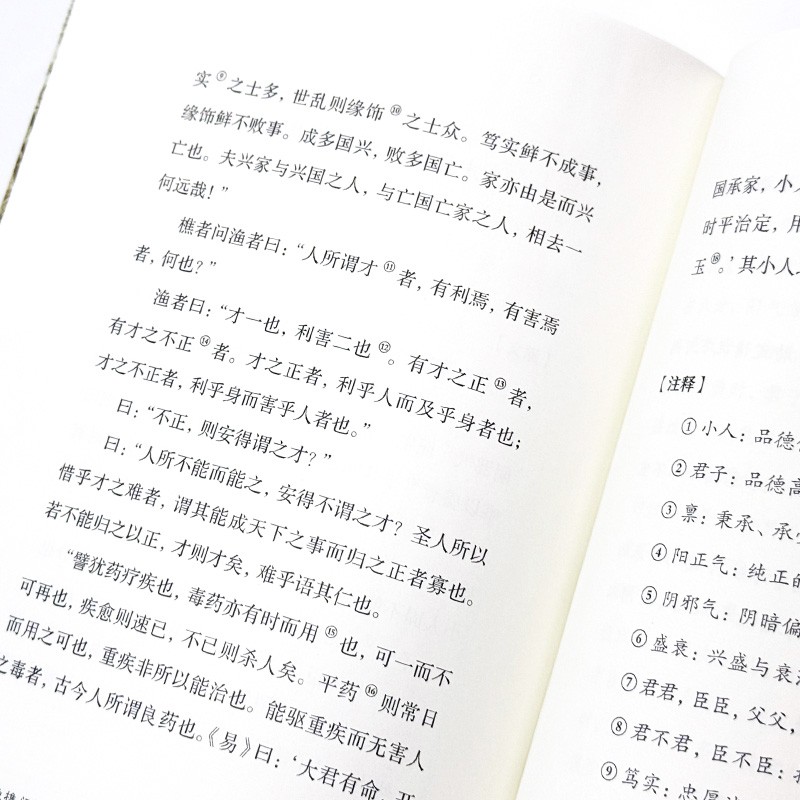 实⑨之士多，世乱则缘饰⑩之士众。笃实鲜不成事，
缘饰鲜不败事。成多国兴，败多国亡。家亦由是而兴
亡也。夫兴家与兴国之人，与亡国亡家之人，相去一
何远哉！”
樵者问渔者曰：“人所谓才⑪者，有利焉，有害焉
者，何也？”
渔者曰：“才一也，利害二也⑫。有才之正⑬者，
有才之不正⑭者。才之正者，利乎人而及乎身者也；
才之不正者，利乎身而害乎人者也。”
曰：“不正，则安得谓之才？”
曰：“人所不能而能之，安得不谓之才？圣人所以
惜乎才之难者，谓其能成天下之事而归之正者寡也。
若不能归之以正，才则才矣，难乎语其仁也。
“譬犹药疗疾也，毒药亦有时而用⑮也，可一而不
可再也，疾愈则速已，不已则杀人矣。平药⑯则常日
而用之可也，重疾非所以能治也。能驱重疾而无害人
之毒者，古今人所谓良药也。《易》曰：‘大君有命，开
国承家，小人
时平治定，用
玉⑱。’其小人
【注释】
①小人：品德
②君子：品德高
③禀：秉承、承
④阳正气：纯正的
⑤阴邪气：阴暗偏
⑥盛衰：兴盛与衰
⑦君君，臣臣，父父，
⑧君不君，臣不臣：
⑨笃实：忠厚